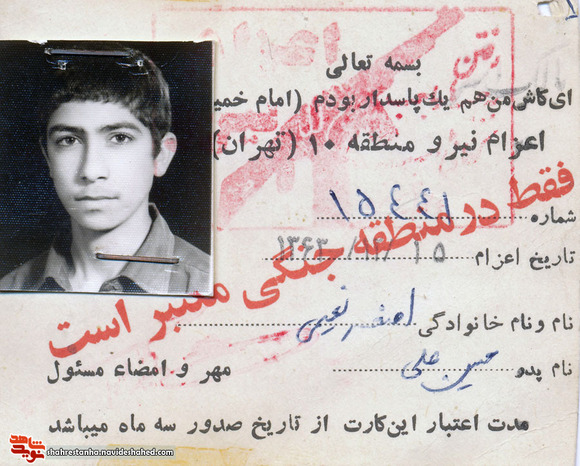 بسمه تعالی
ای کاش من هم یك پاسدار بودم (امام خمی
اعزام نیرو منطقه ۱۰ (تهران)
فقط در منطقه جنگی معتبر است
شماره ۱۵۴۴۱
تاریخ اعزام ۱۵ / ۱۳۶۳
نام و نام خانوادگی اصغر نعیمی
نام پدر حسین علی
مهر و امضاء مسئول
مدت اعتبار این کارت از تاریخ صدور سه ماه میباشد
نوید شاهد
shahrestanha.navideshahed.com